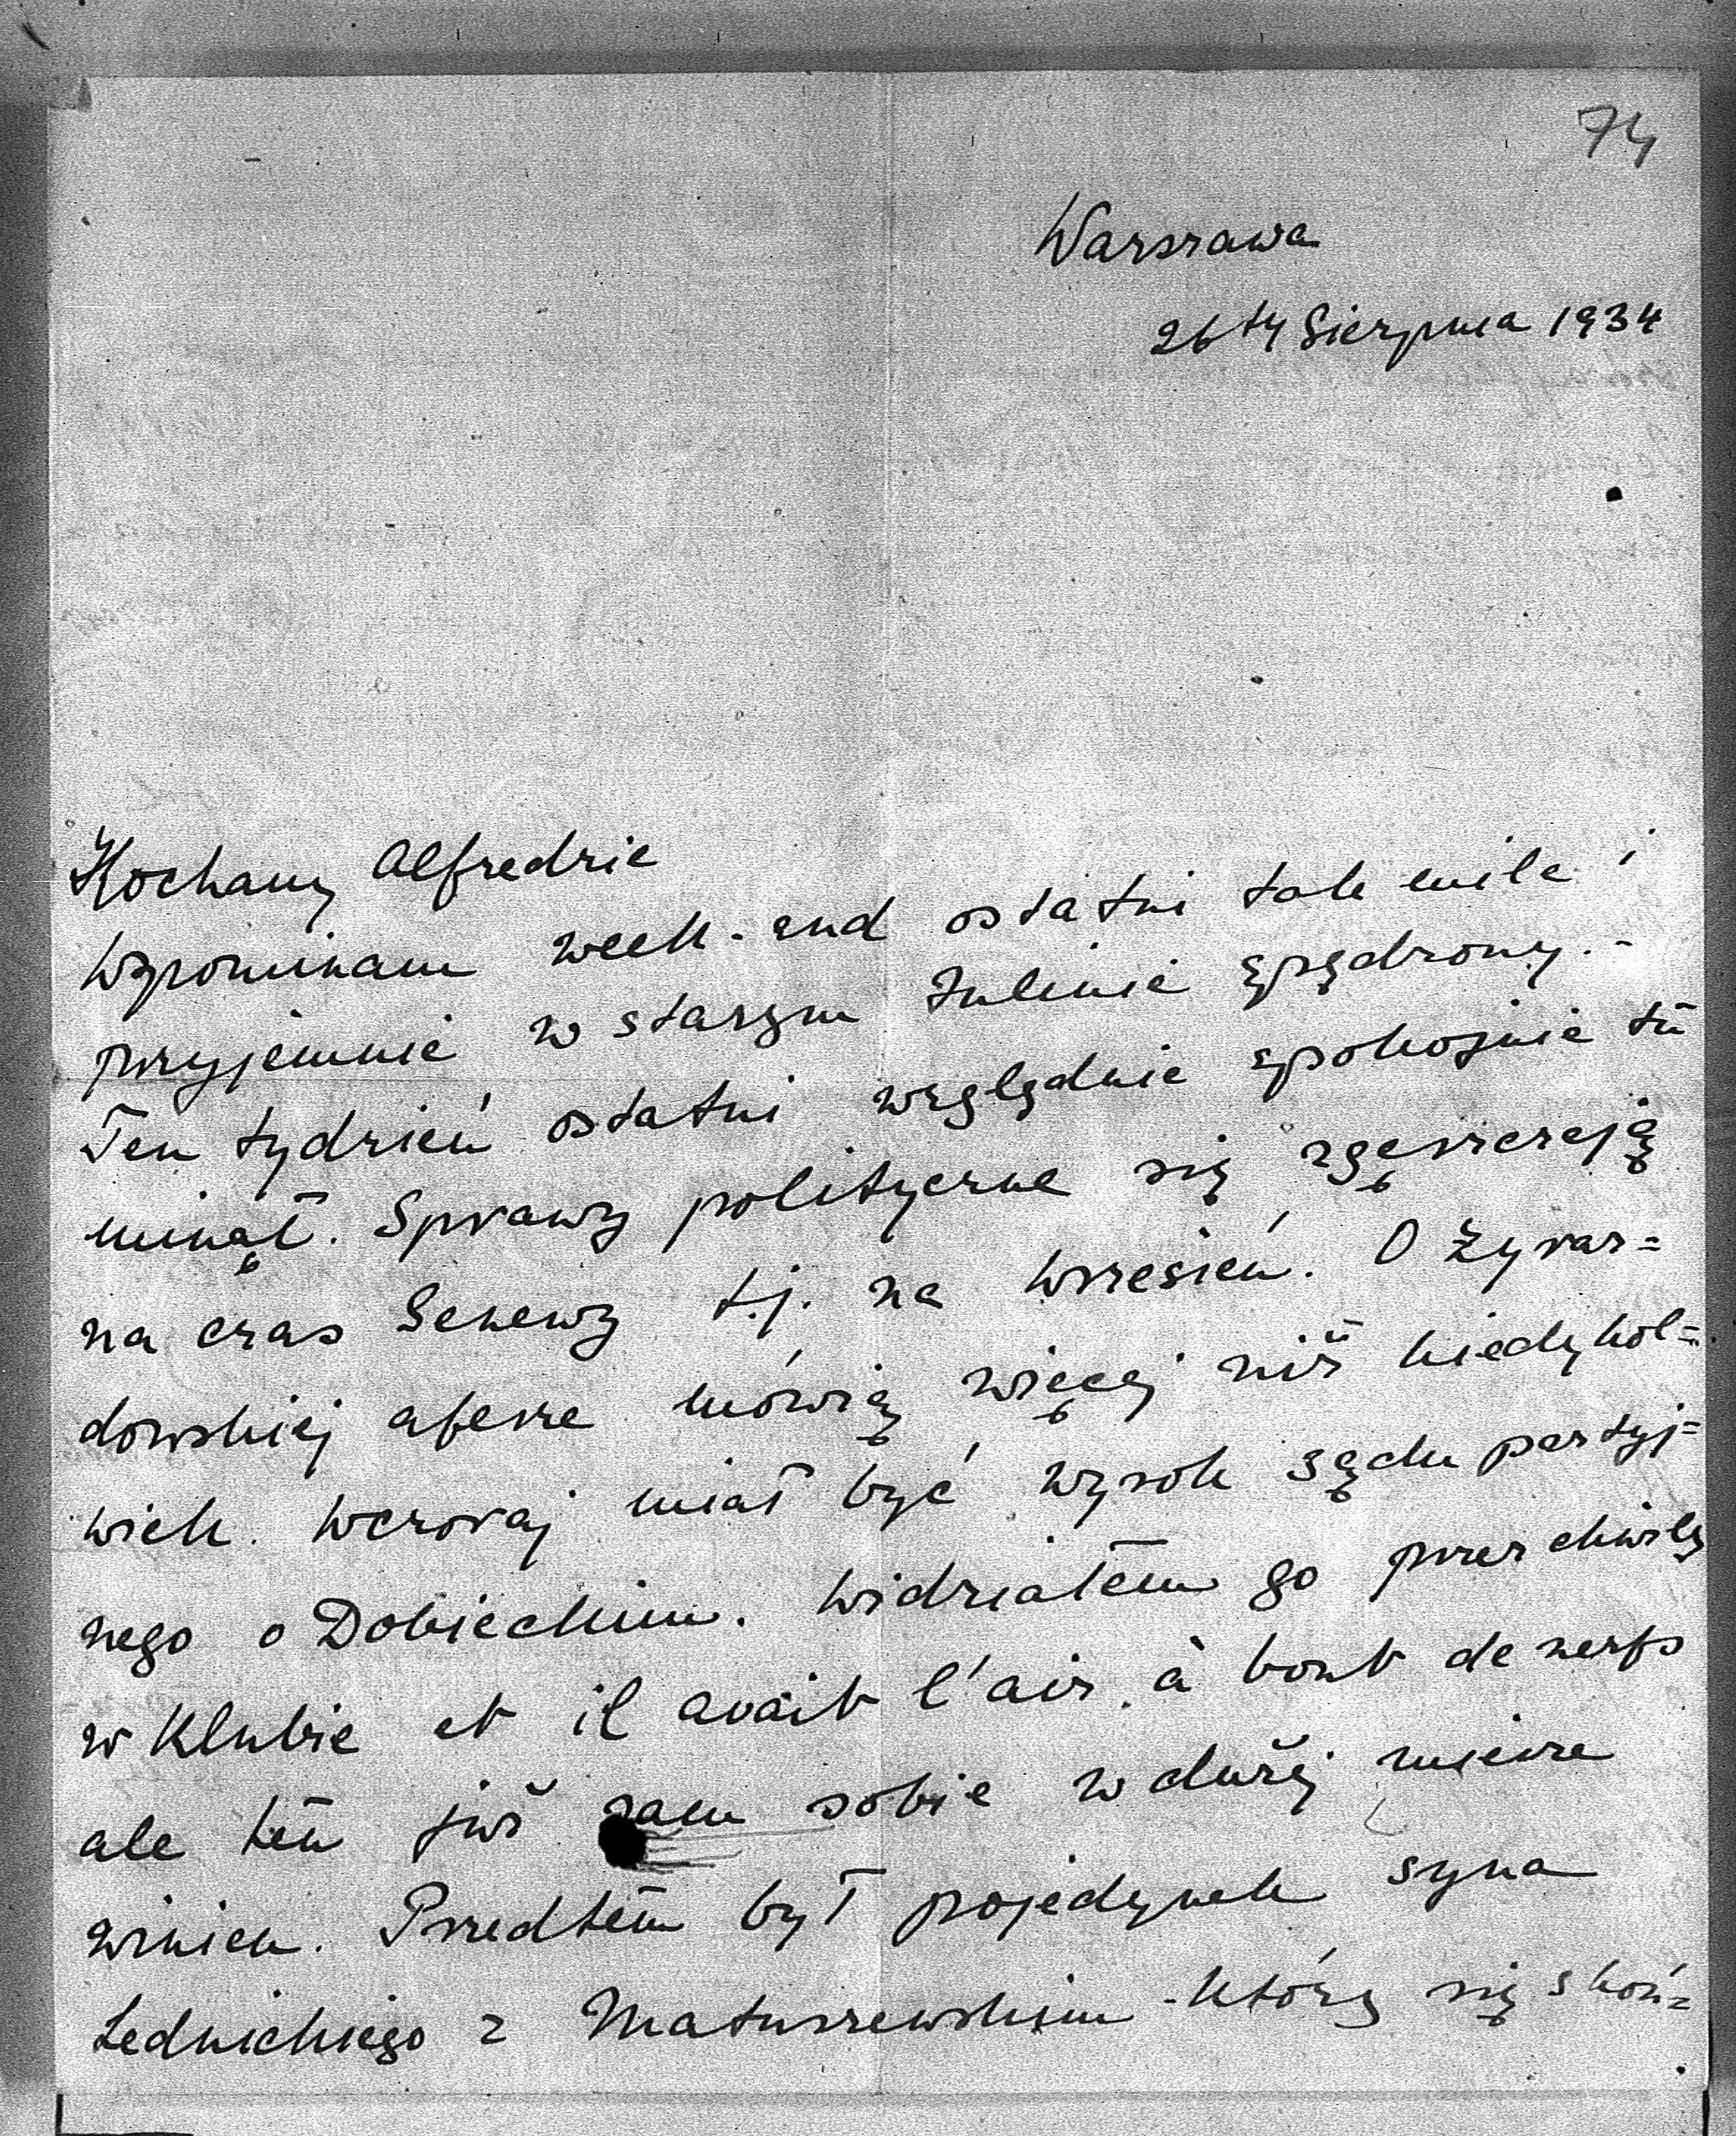 74
Warszawa
26ty Sierpnia 1934
Kochany Alfredzie
Wspominam week-end ostatni tak mile i
przyjemnie w starym Julinie spędzony. -
Ten tydzień ostatni względnie spokojnie tu
minął. Sprawy polityczne się zgęszczają
na czas Genewy t.j. na Wrzesień. O Żyrar=
dowskiej aferze mówią więcej niż kiedykol=
wiek. Wczoraj miał być wyrok sądu partyj=
nego o Dobieckim. Widziałem go przez chwilę
w Klubie et il avait l'air à bout de nerfs
ale ten już sam sobie w dużej mierze
winien. Przedtem był pojedynek syna
Lednickiego z Matuszewskim - który się skoń=